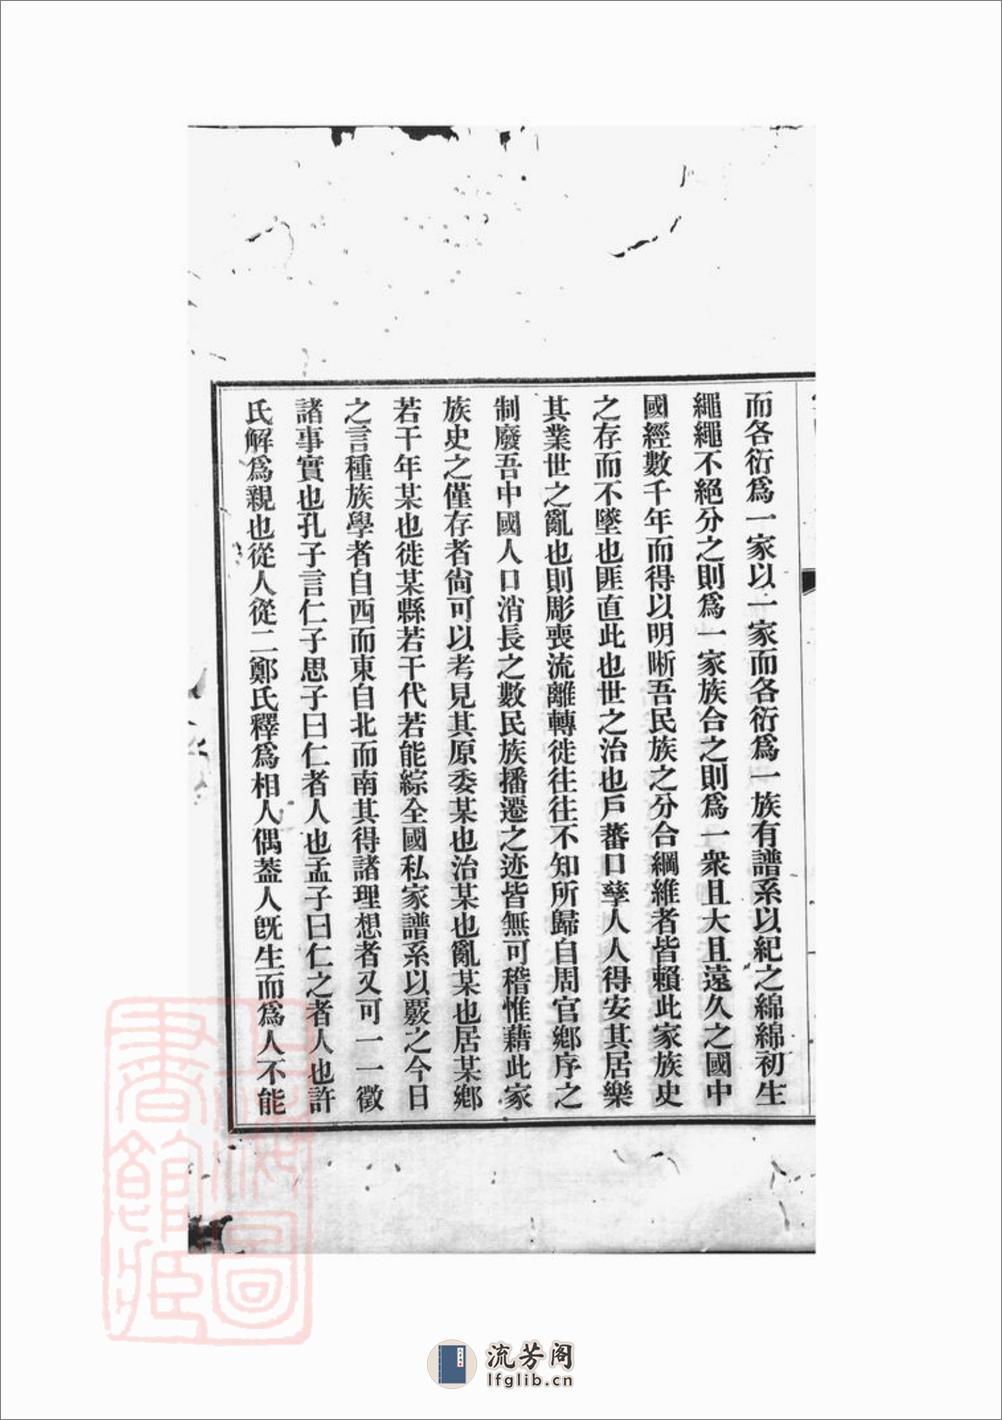 而各衍爲一家以一家而各衍爲一族有譜系以紀之綿綿初生
繩繩不絕分之則爲一家族合之則爲一衆且大且遠久之國中
國經數千年而得以明晰吾民族之分合綱維者皆賴此家族史
之存而不墜也匪直此也世之治也戶蕃口孳人人得安其居樂
其業世之亂也則彫喪流離轉徙往往不知所歸自周官鄉序之
制廢吾中國人口消長之數民族播遷之迹皆無可稽惟藉此家
族史之僅存者尙可以考見其原委某也治某也亂某也居某鄉
若干年某也徙某縣若干代若能綜全國私家譜系以覈之今日
之言種族學者自西而東自北而南其得諸理想者又可一一徵
諸事實也孔子言仁子思子曰仁者人也孟子曰仁之者人也許
氏解爲親也從人從二鄭氏釋爲相人偶蓋人旣生而爲人不能
上海圖
書館藏
流芳阁
lfglib.cn